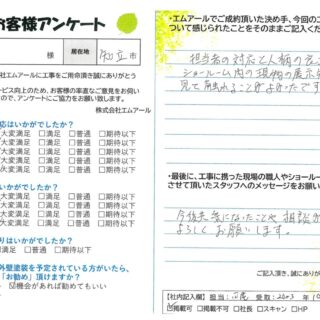 お客様アンケート
様 居在地 知立市
株式会社エムアールに工事をご用命頂き誠にありがとう
サービス向上のため、お客様の率直なご意見をお伺い
ので、アンケートにご協力をお願い致します。
株式会社エムアール
応はいかがでしたか？
大変満足 □満足 □普通 □期待以下
大変満足 □満足 □普通 □期待以下
大変満足 □満足 □普通 □期待以下
大変満足 □満足 □普通 □期待以下
でしたか？
大変満足 □満足 □普通 □期待以下
大変満足 □満足 □普通 □期待以下
りはいかがでしたか？
□満足 □普通 □期待以下
外壁塗装を予定されている方がいたら、
「お勧め」頂けますか？
機会があれば勧めてもいい
・エムアールでご成約頂いた決め手、今回のエ
ついて感じられたことをそのままご記入くだ
担当者の対応と人柄の良
ショールーム内の現物の展示
見て触れることがよかったです
・最後に、工事に携った現場の職人やショールー
させて頂いたスタッフへのメッセージをお願い
今後共気になったことや相談が
よろしくお願いします。
ご記入頂き、誠にありが
【社内記入欄】担当： 受取：
□掲載可 □掲載不可 □社長 □スキャン □HP